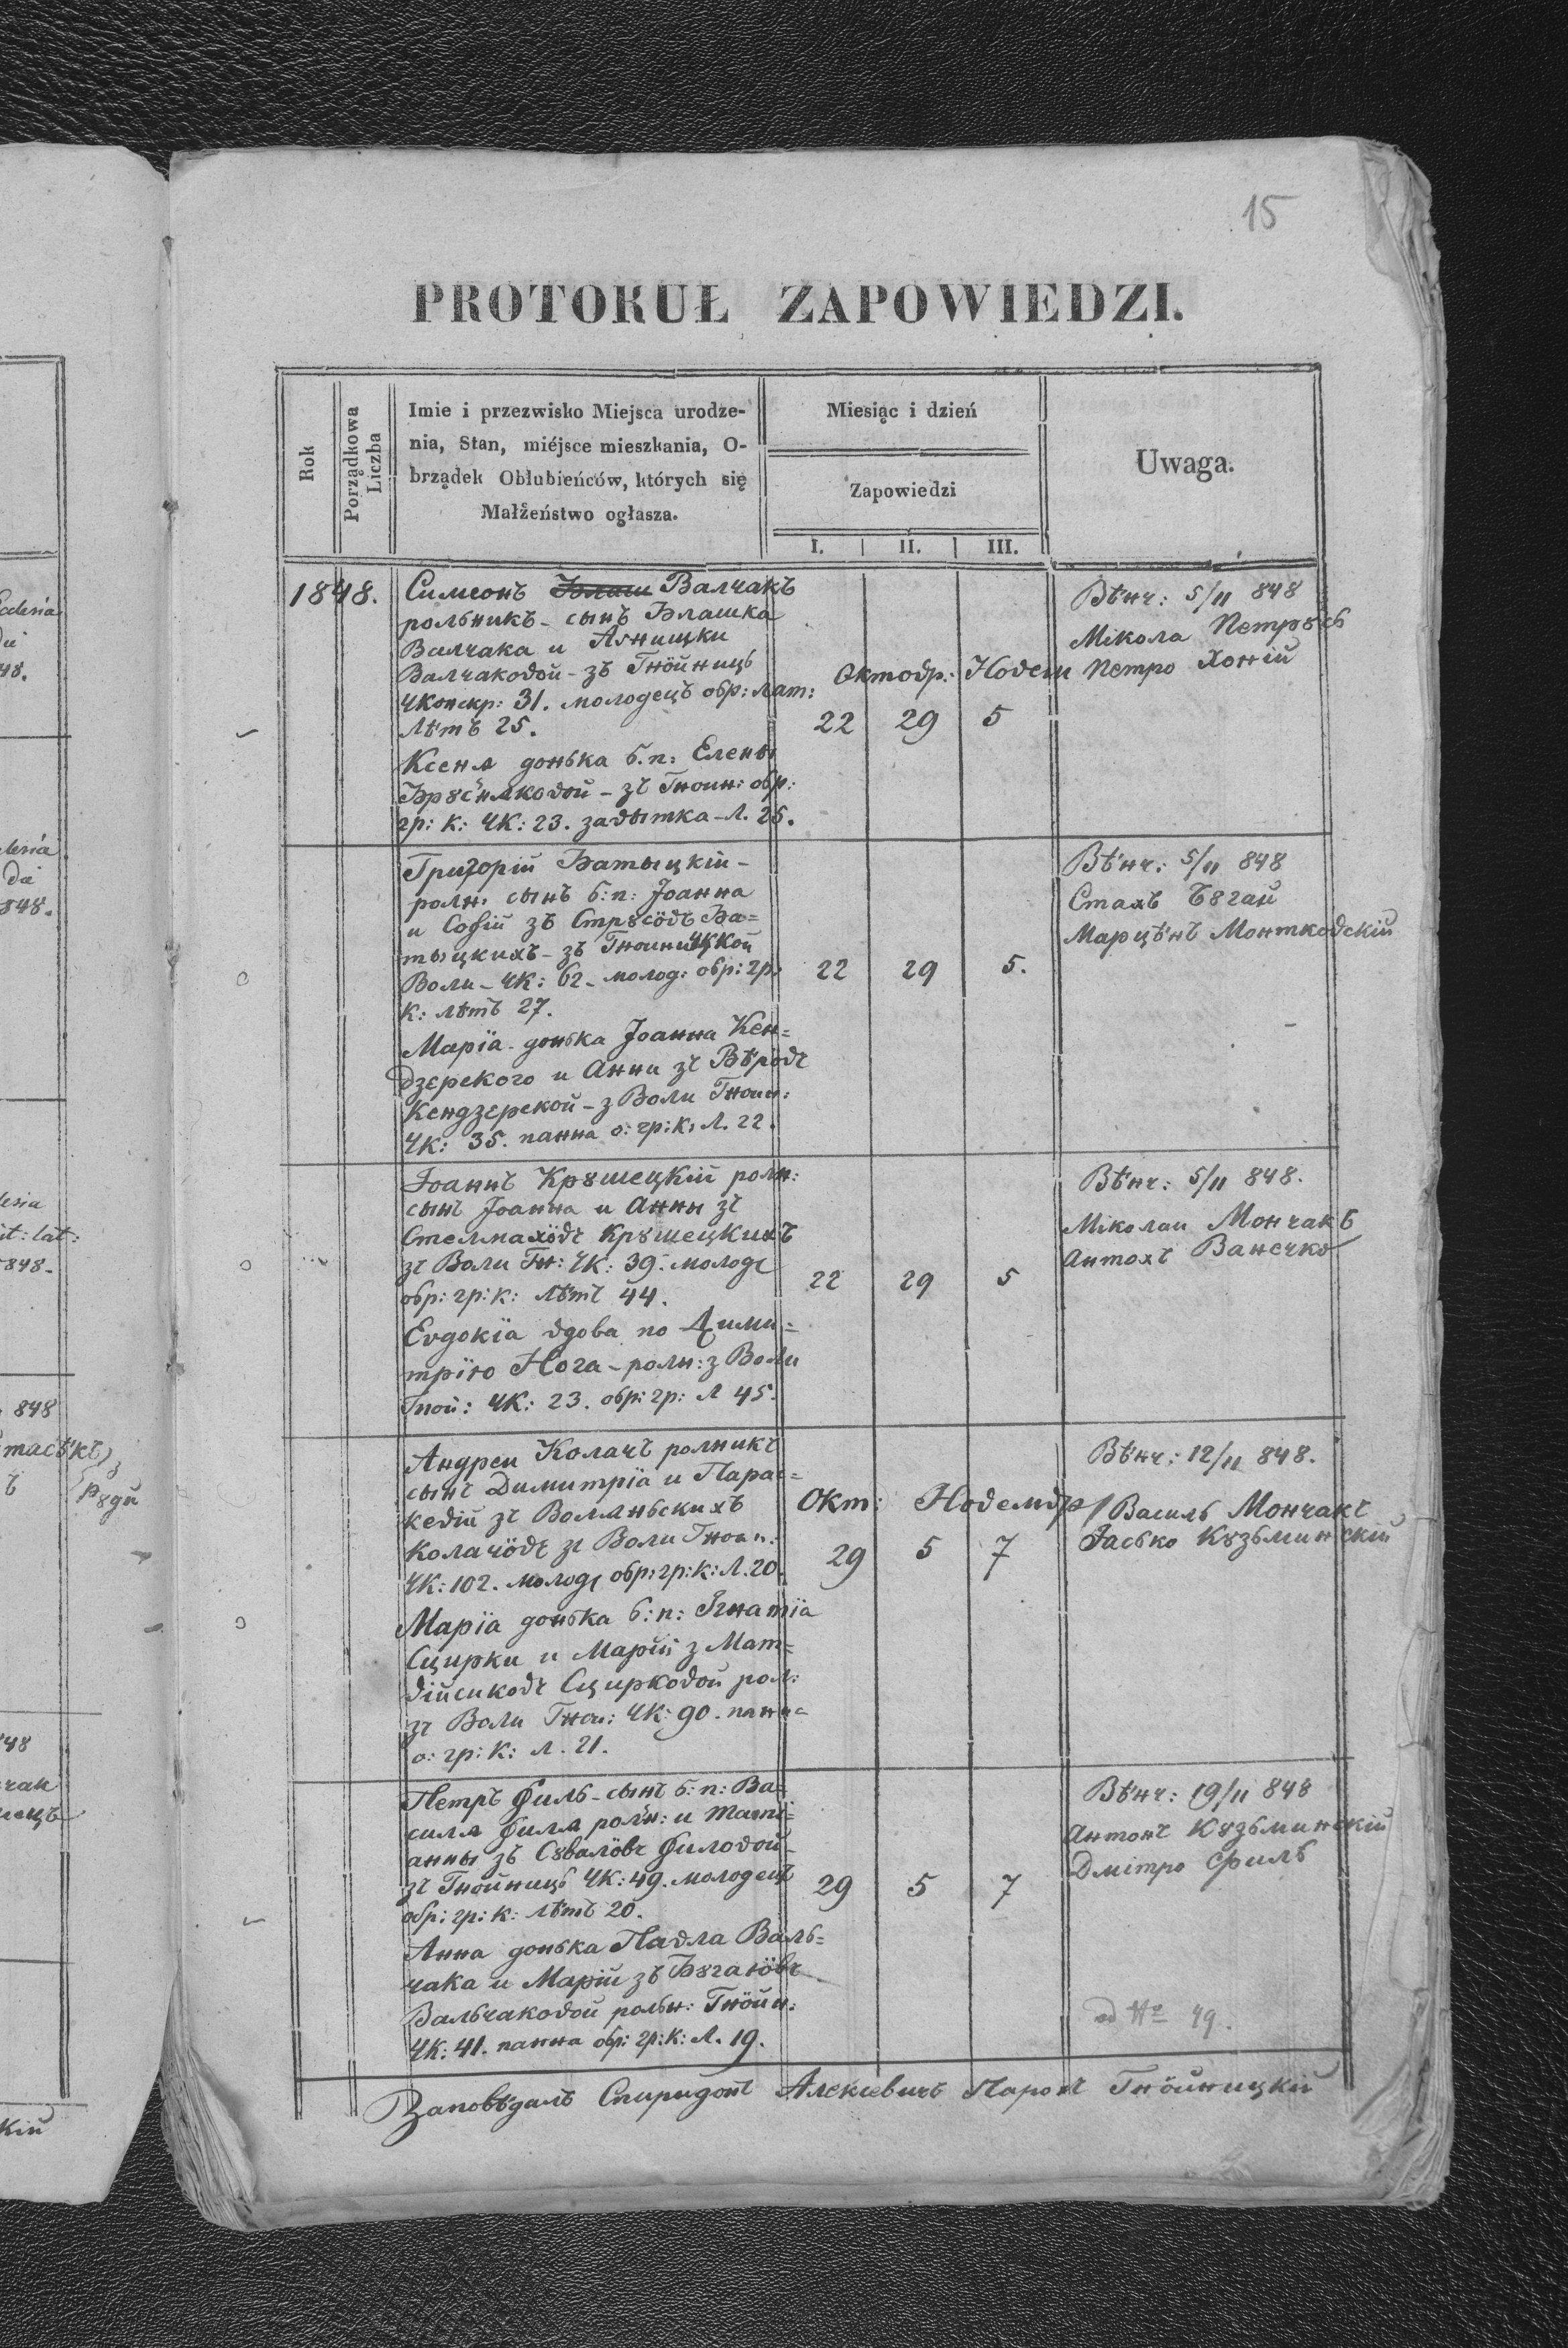 15
PROTOKUŁ ZAPOWIEDZI.
Rok
Porządkowa Liczba
Imie i przezwisko Miejsca urodze-
nia, Stan, miéjsce mieszkania, O-
brządek Obłubieńców, których się
Małżeństwo ogłasza.
Miesiąc i dzień
Zapowiedzi
I. II. III.
Uwaga.
1848.
Симеонъ Валчакъ
рольникъ - сынъ Блашка
Валчака и Агнишки
Валчаковои - зъ Гнойниць
Чконскр: 31. молодецъ обр: лат:
лѣтъ 25.
Ксенѧ донька б.п: Елены
Брꙋснѧковой - зъ Гноин: обр:
гр: к: ЧК: 23. завытка - Л. 25.
Октовр: Новем
22 29 5
Вѣнч: 5/11 848
Мікола Петрꙋсь
Петро Хоній
Григорій Батыцкій -
ролн: сынъ б:п: Іоанна
и Софій зъ Стрꙋсӧвъ Ба=
тыцкихъ - зъ Гноиницкой
Воли - ЧК: 62 - молод: обр: гр:
к: лѣтъ 27.
Марїа - донька Іоанна Кен=
дзерского и Анни зъ Вѣрӧвъ
Кендзерской - з Воли Гноин:
ЧК: 35. панна о: гр: к: Л. 22.
22 29 5.
Вѣнч: 5/11 848
Стахъ Бꙋгай
Марцѣнъ Монтковскій
Іоаннъ Крꙋшецкій ролн:
сынъ Іоанна и Анны зъ
Стелмахӧвъ Крꙋшецкихъ
зъ Воли Гн: ЧК: 39. молоде
обр: гр: к: лѣтъ 44.
Еѵдокїа вдова по Дими=
трїю Нога - ролн: з Воли
Гной: ЧК: 23. обр: гр: Л 45.
22 29 5
Вѣнч: 5/11 848.
Міколаи Мончакъ
Антохъ Ванечко
Андреи Колачъ ролникъ
сынъ Димитрїа и Парас=
кевій зъ Волѧньскихъ
Колачӧвъ зъ Воли Гноин:
ЧК: 102. молоде обр: гр: к: Л. 20.
Марїа донька б: п: Ігнатїа
Сцирки и Марій з Мат=
війсиковъ Сцирковой рол:
зъ Воли Гнои: ЧК: 90. панна
о: гр: к: Л. 21.
Окт: Новемвр
29 5 7
Вѣнч: 12/11 848.
Василь Мончакъ
Іасько Кꙋзьминскій
Петръ Филь - сынъ б: п: Ва=
силѧ Филѧ ролн: и Таті=
анны зъ Сꙋвалӧвъ Филовой -
зъ Гнойниць ЧК: 49. молодецъ
обр: гр: к: лѣтъ 20.
Анна донька Павла Валь=
чака и Марій зъ Бꙋгаіӧвъ
Вальчаковой рольн: Гнӧйн:
ЧК: 41. панна обр: гр: к: Л. 19.
29 5 7
Вѣнч: 19/11 848
Антонъ Кꙋзьминскій
Дмітро Филь
ad No 49.
Заповѣдалъ Спиридонъ Алексіевичъ Парохъ Гнӧйницкій